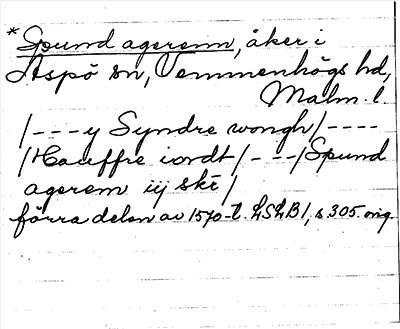 *Spund agerenn, åker i
Aspö sn, Vemmenhögs hd,
Malm. l.
/---y Syndre wongh/----
/Hauffre iordt/---/Spund
agerem iij skt/
förra delen av 1570-t. LSLB1, s 305. orig.